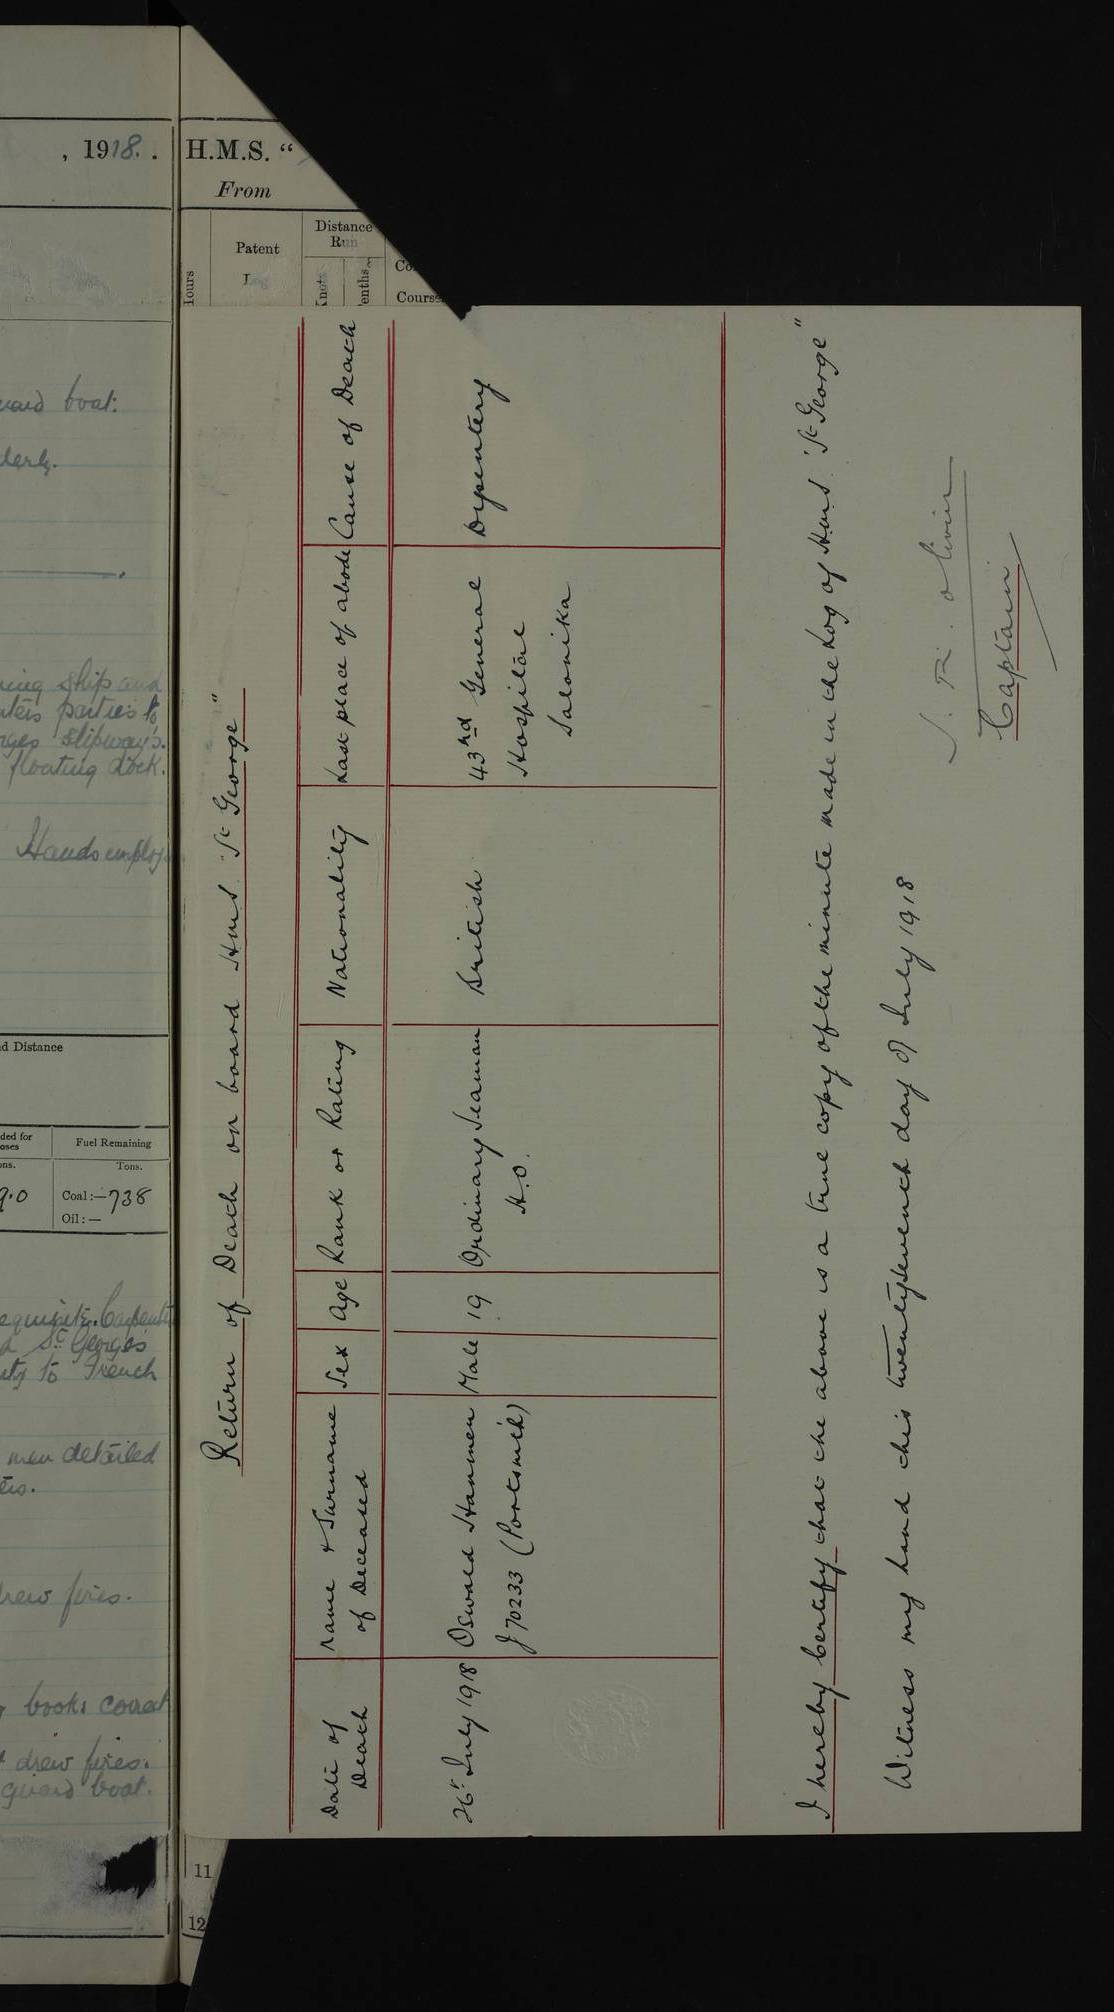 , 1918. .
uard boat:
derly.
ning ship and
nters parties to
rges slipways.
floating dock.
Hands employ
d Distance
ded for
oses
Fuel Remaining
ons.
Tons.
9.0
Coal:-738
Oil:—
equisite. Carpent
d St Georges
uty to French
men detailed
ers.
rew fires.
books correct
drew fires.
guard boat.
H.M.S. “
From
Hours
Patent
Log
Distance
Run
Knots
Tenths
Co
Course
11
12
Return of Death on board H.M.S. "St George"
Date of
Death
Name & Surname
of Deceased
Sex
Age
Rank or Rating
Nationality
Last place of abode
Cause of Death
26th July 1918
Oswald Hanmen
J 70233 (Portsmth)
Male
19
Ordinary Seaman
H.O.
British
43rd General
Hospital
Salonika
Dysentery
I hereby Certify that the above is a true copy of the minute made in the Log of H.M.S. "St George"
Witness my hand this twentyseventh day of July 1918
Captain